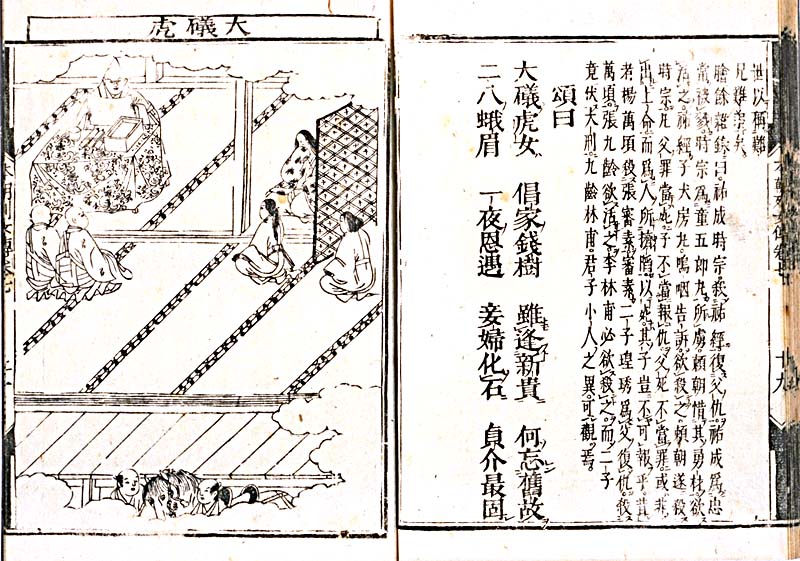 世以稱難
兄難弟矣
膽餘雜錄曰祐成時宗殺祐經復父仇祐成爲忠
常被殺時宗爲童五郎丸所虜賴朝惜其勇材欲
活之祐經子犬房丸嗚咽告訴欲殺之賴朝遂殺
時宗凡父罪當死子不當報仇父死不當罪或非
出上命而爲人所擠陷以死其子豈不可報乎昔
者楊萬頃殺張審素審素二子瑝琇爲父復仇殺
萬頃張九齡欲活之李林甫必欲殺之而二子
竟伏大刑九齡林甫君子小人之異可觀焉
頌曰
大礒虎女 倡家錢樹 雖逢新貴 何忘舊故
二八蛾眉 一夜恩遇 妾婦化石 貞介最固
十九
大礒虎